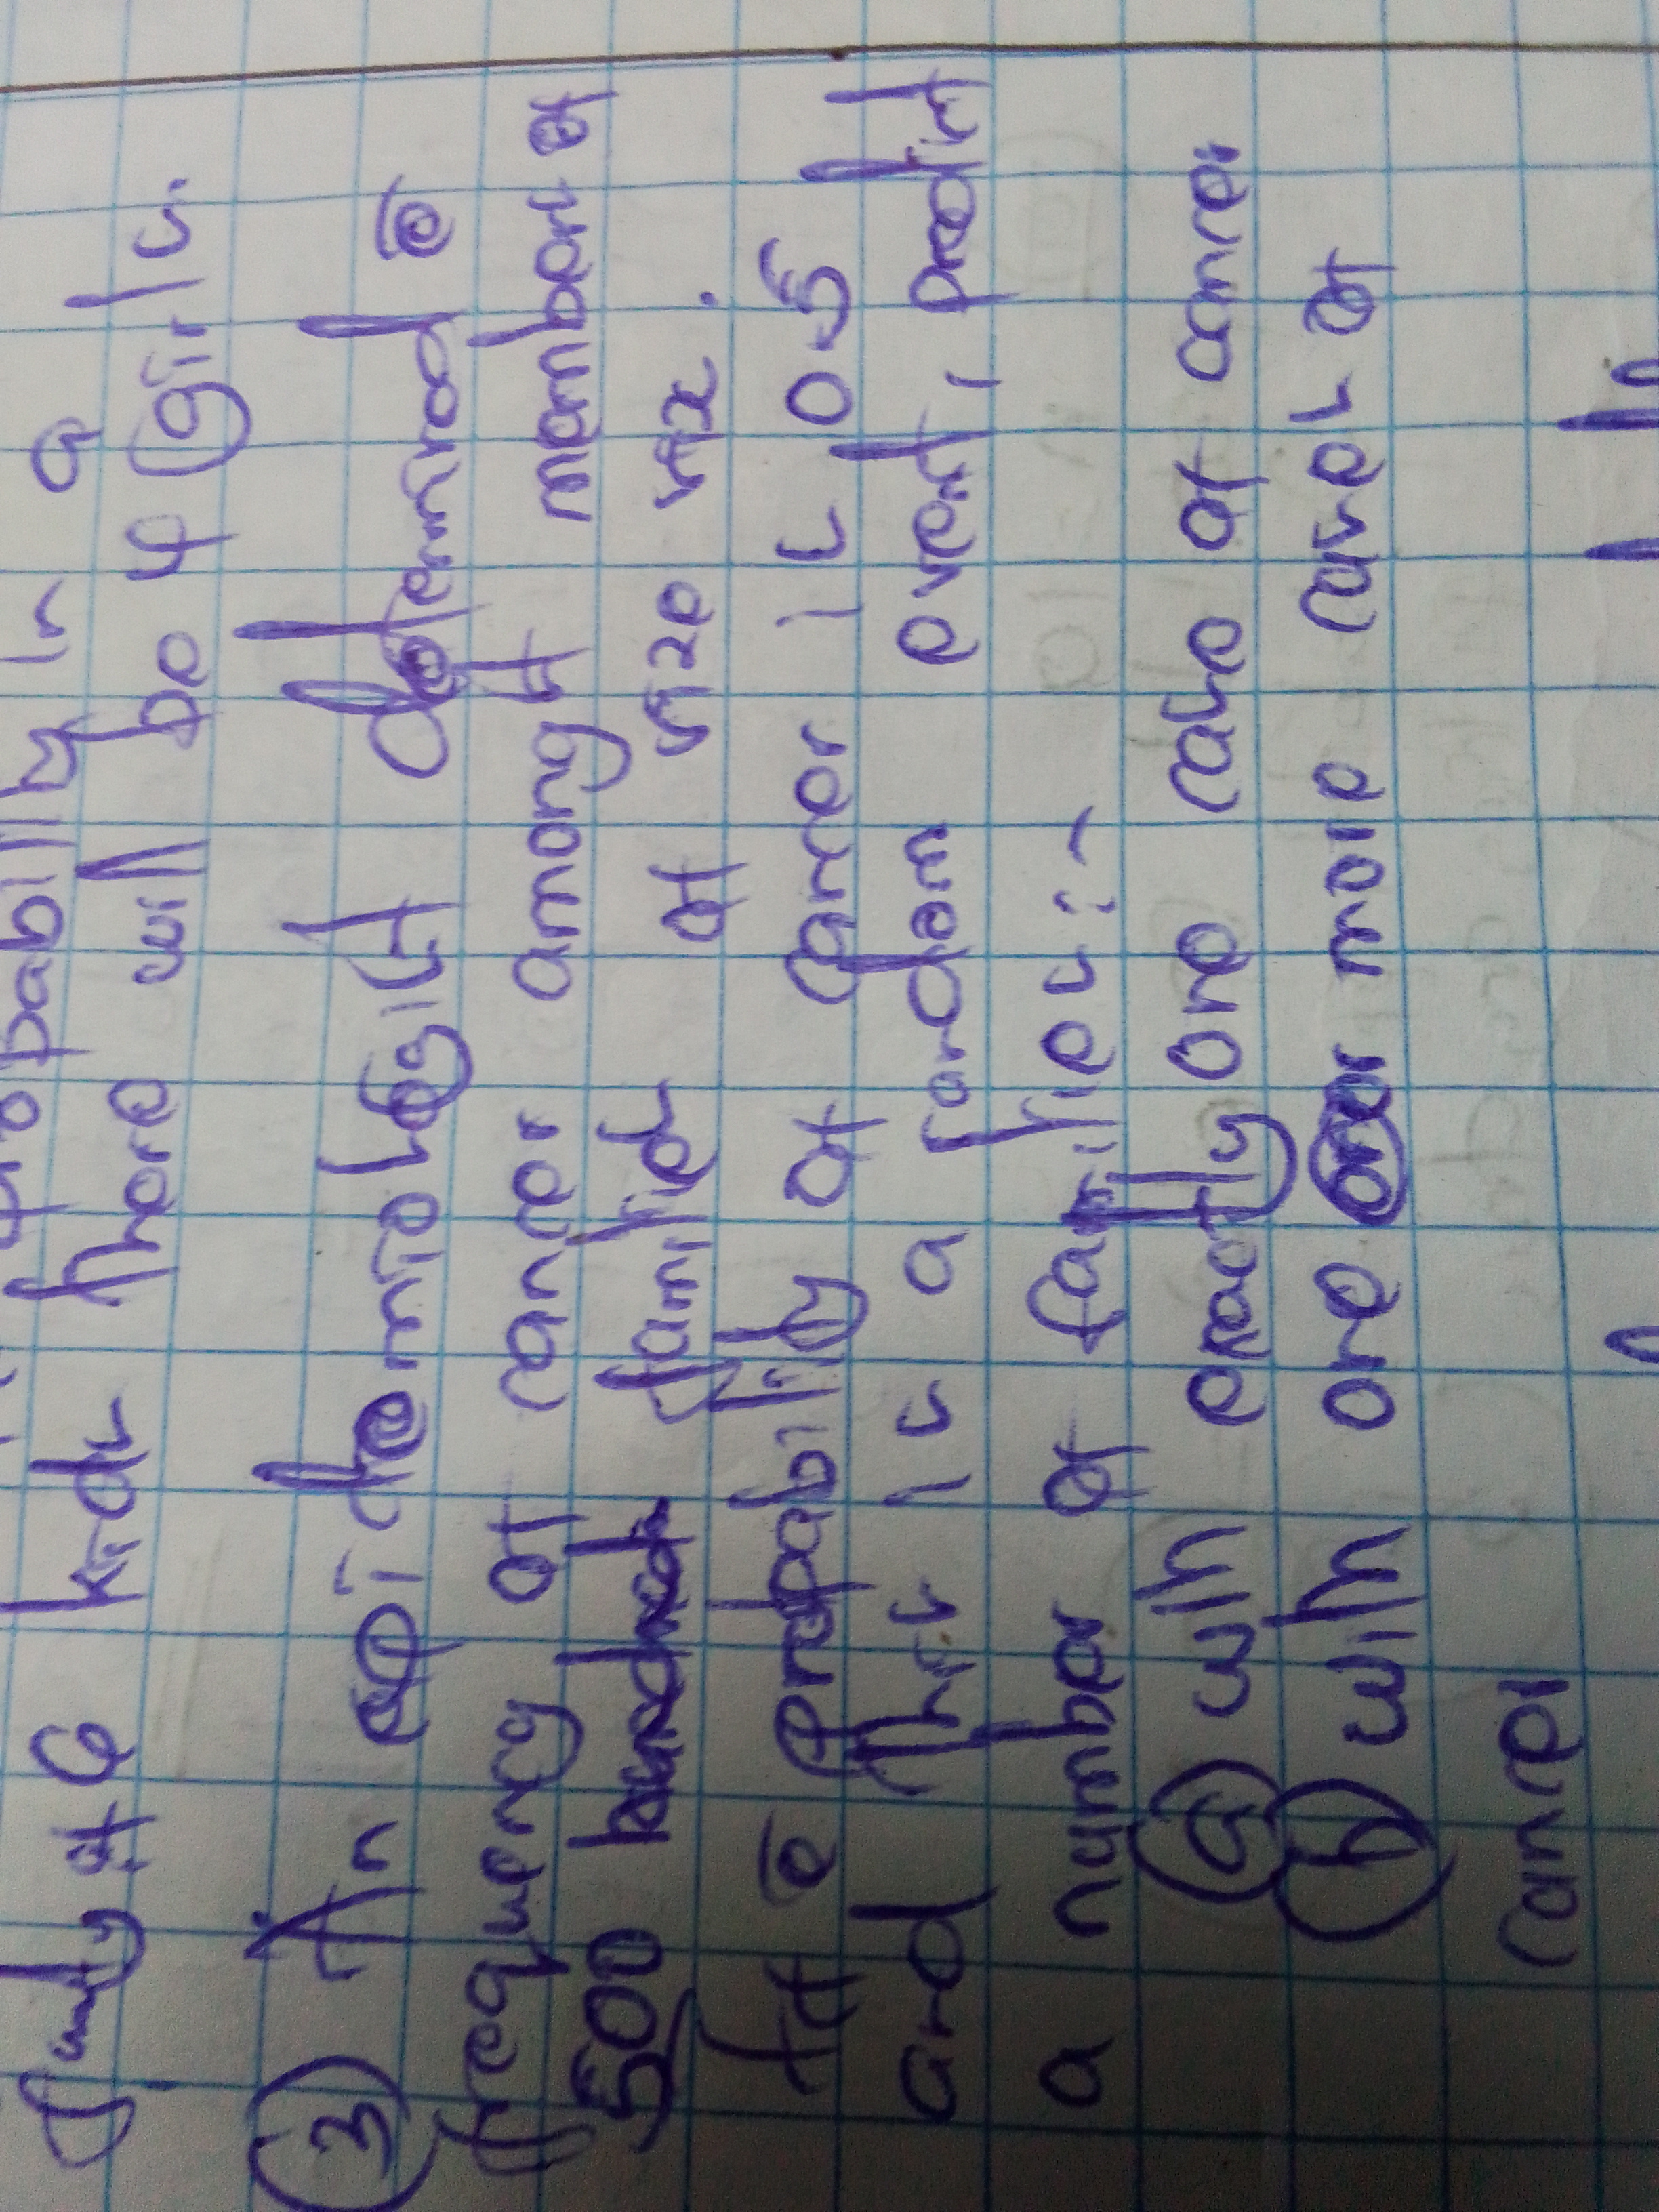 probability in a
family of 6 kids there will be 4 girls.
③ An epidemiologist determined e
frequency of cancer among members of
500 families of size six.
If e probability of cancer is 0.5
and this is a random event, predict
a number of families:-
ⓐ with exactly one case of cancer
ⓑ with one or more cases of
cancer